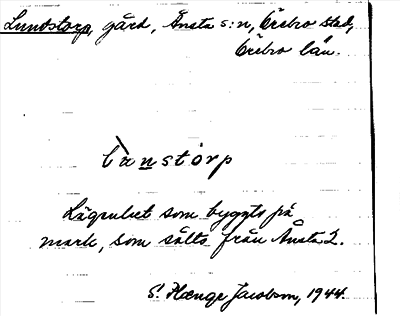 Lundstorp, gård, Ånsta s:n, Örebro stad,
Örebro län.
Lägenhet som byggts på
mark, som sålts från Ånsta 2.
S. Hænge Jacobson, 1944.